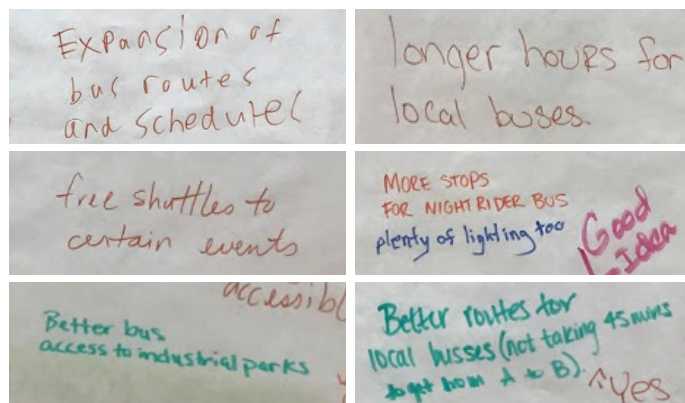 Expansion of
bus routes
and schedules
longer hours for
local buses.
free shuttles to
certain events
MORE STOPS
FOR NIGHT RIDER BUS
plenty of lighting too
Good
Idea
accessibl
Better bus
access to industrial parks
Better routes for
local busses (not taking 45 mins
to get from A to B).
^Yes